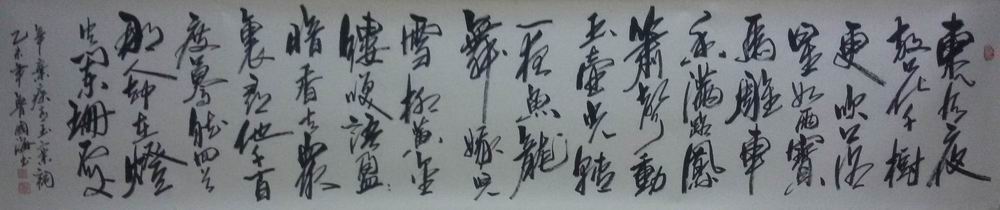 東风夜
放花千樹
更吹落
星如雨寶
馬雕車
香滿路鳳
簫聲動
玉壺光轉
一夜魚龍
舞蛾兒
雪柳黃金
縷咲語盈:
暗香去衆
裏尋他千百
度驀然回首
那人却在燈
火闌珊處
辛棄疾青玉案詞
乙未年國海書